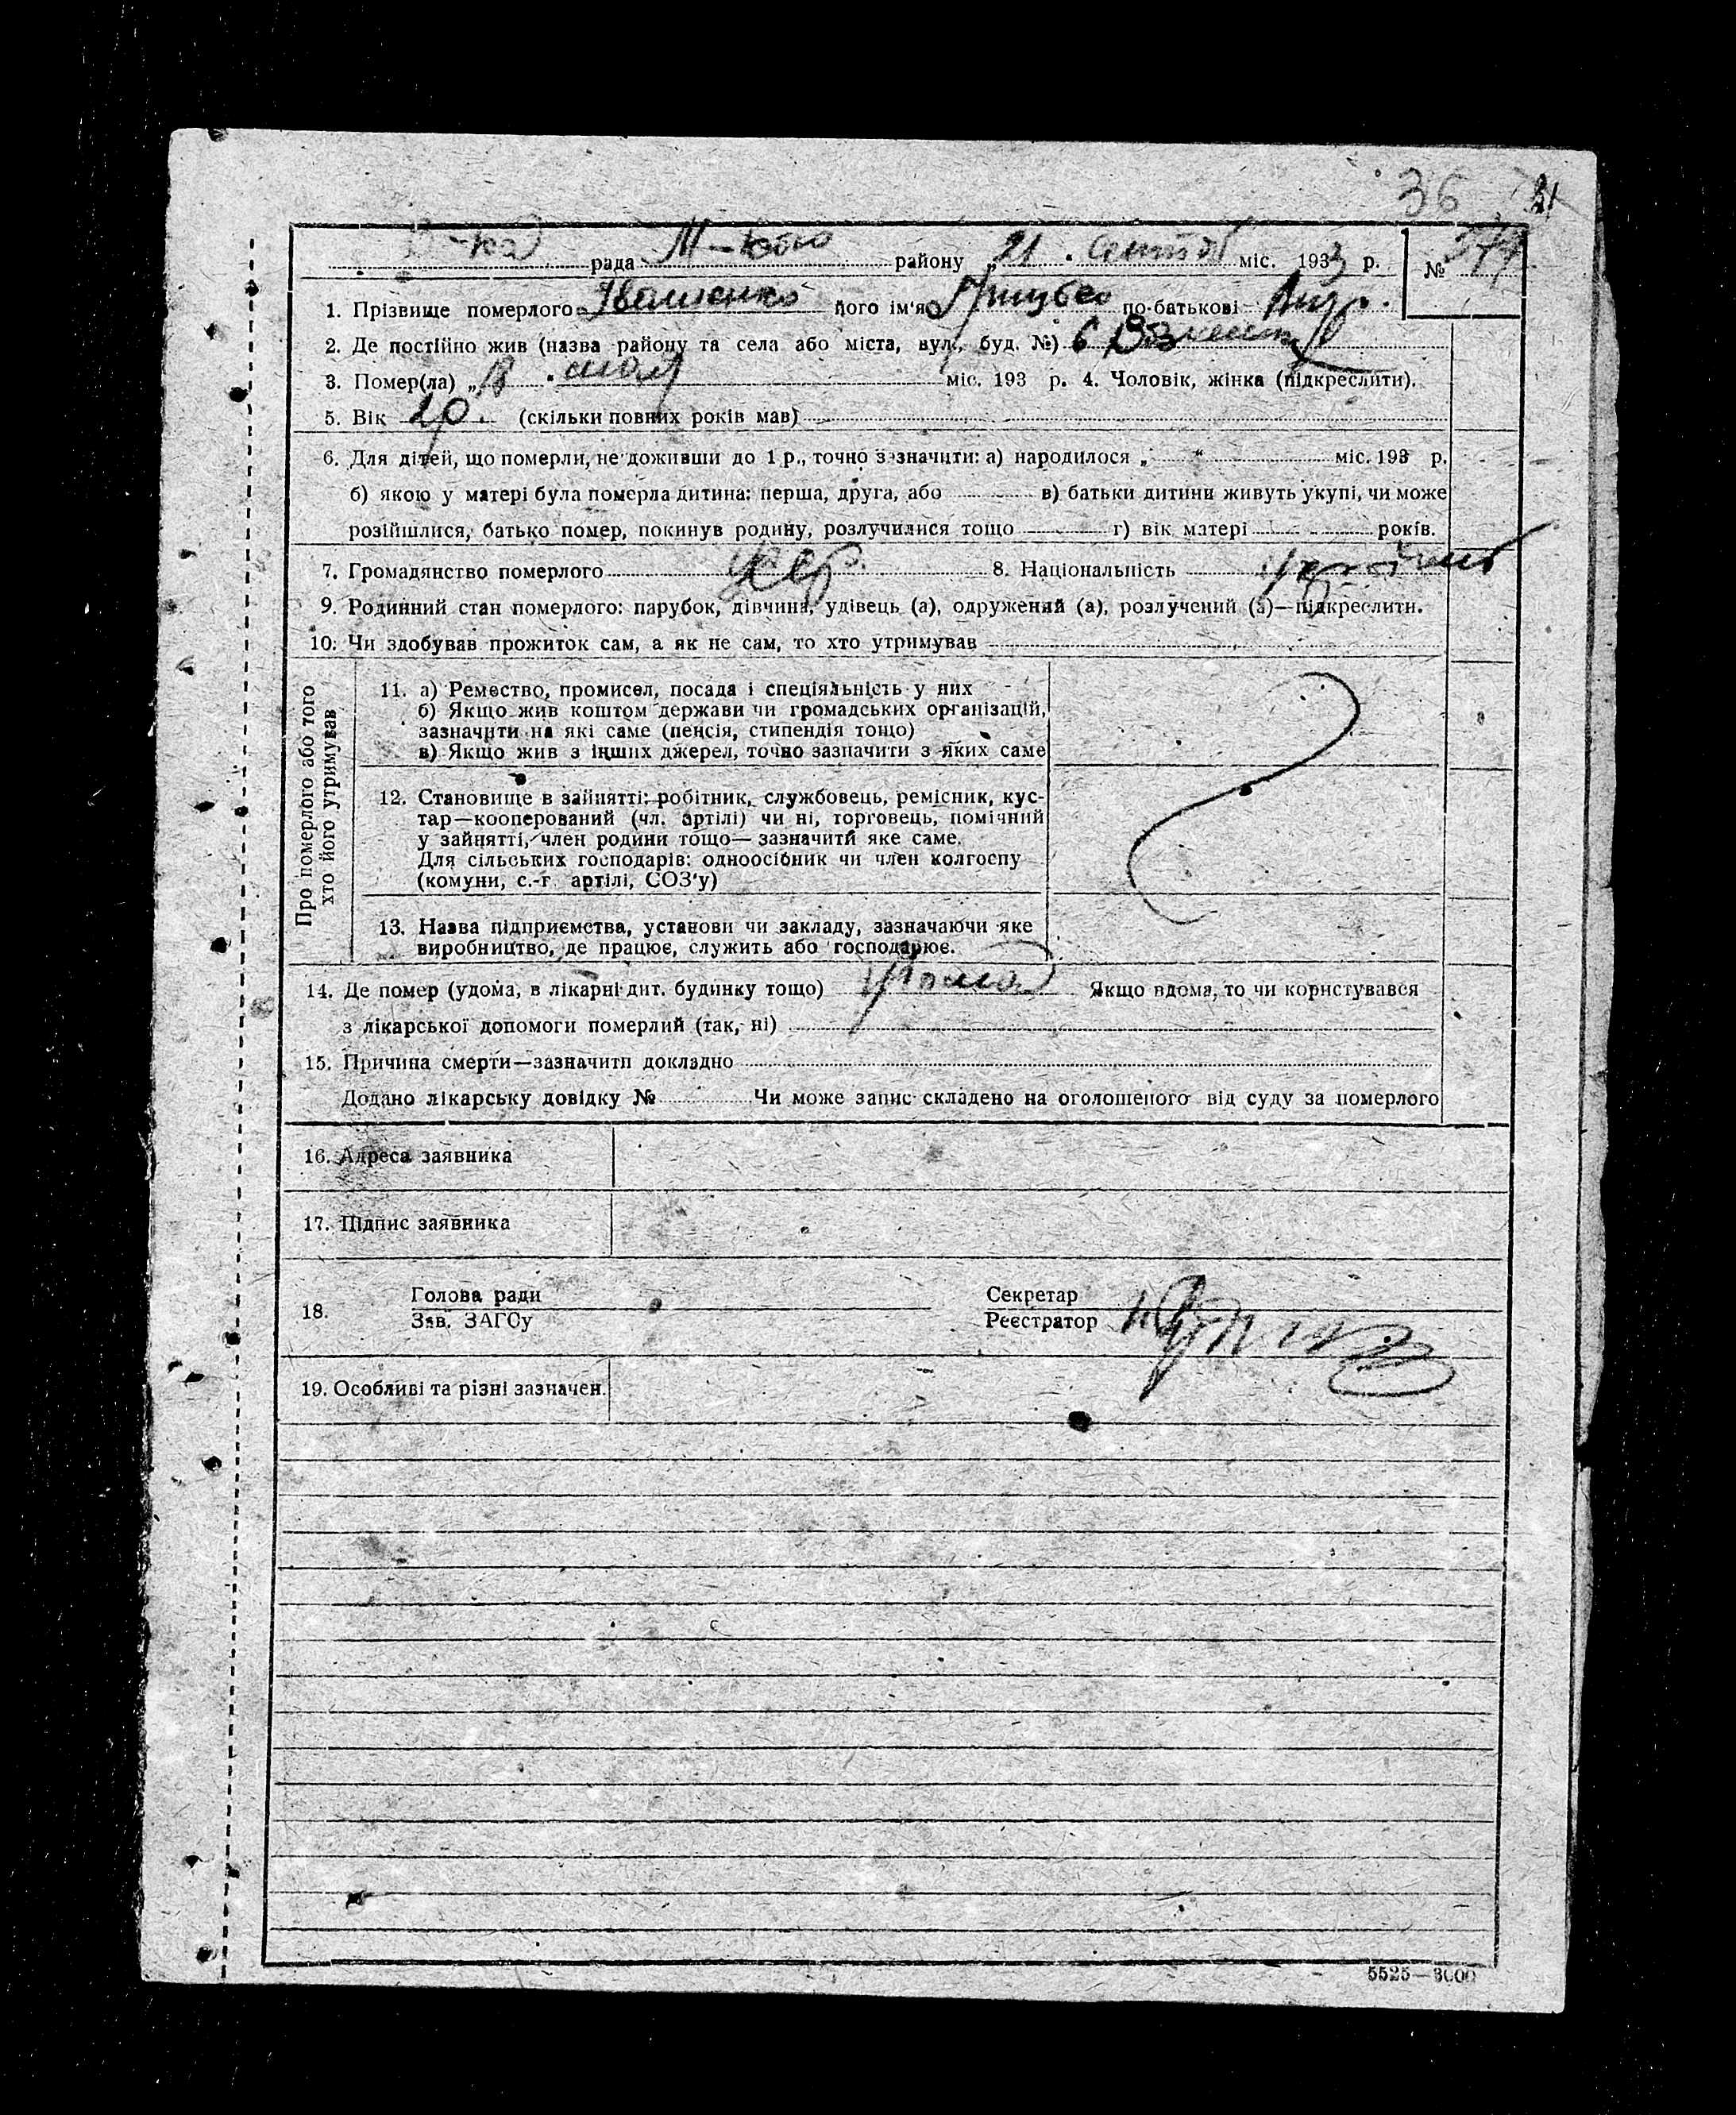 36
рада району 21 міс. 1933 р. №
1. Прізвище померлого Іваненко його ім'я по-батькові
2. Де постійно жив (назва району та села або міста, вул., буд. №)
3. Помер(ла) „ міс. 193 р. 4. Чоловік, жінка (підкреслити).
5. Вік (скільки повних років мав)
6. Для дітей, що померли, не доживши до 1 р., точно зазначити: а) народилося „ “ міс. 193 р.
б) якою у матері була померла дитина: перша, друга, або в) батьки дитини живуть укупі, чи може
розійшлися, батько помер, покинув родину, розлучилися тощо г) вік матері років.
7. Громадянство померлого 8. Національність
9. Родинний стан померлого: парубок, дівчина, удівець (а), одружений (а), розлучений (а)—підкреслити.
10. Чи здобував прожиток сам, а як не сам, то хто утримував
Про померлого або того
хто його утримував
11. а) Ремество, промисел, посада і спеціяльність у них
б) Якщо жив коштом держави чи громадських організацій,
зазначити на які саме (пенсія, стипендія тощо)
в) Якщо жив з інших джерел, точно зазначити з яких саме
12. Становище в зайнятті: робітник, службовець, ремісник, кус-
тар—кооперований (чл. артілі) чи ні, торговець, помічний
у зайнятті, член родини тощо— зазначити яке саме.
Для сільських господарів: одноосібник чи член колгоспу
(комуни, с.-г артілі, СОЗ'у)
13. Назва підприємства, установи чи закладу, зазначаючи яке
виробництво, де працює, служить або господарює.
14. Де помер (удома, в лікарні дит. будинку тощо) удома Якщо вдома, то чи користувався
з лікарської допомоги померлий (так, ні)
15. Причина смерти—зазначити докладно
Додано лікарську довідку № Чи може запис складено на оголошеного від суду за померлого
16. Адреса заявника
17. Підпис заявника
18. Голова ради Секретар
Зав. ЗАГСу Реєстратор
19. Особливі та різні зазначен.
5525—3000